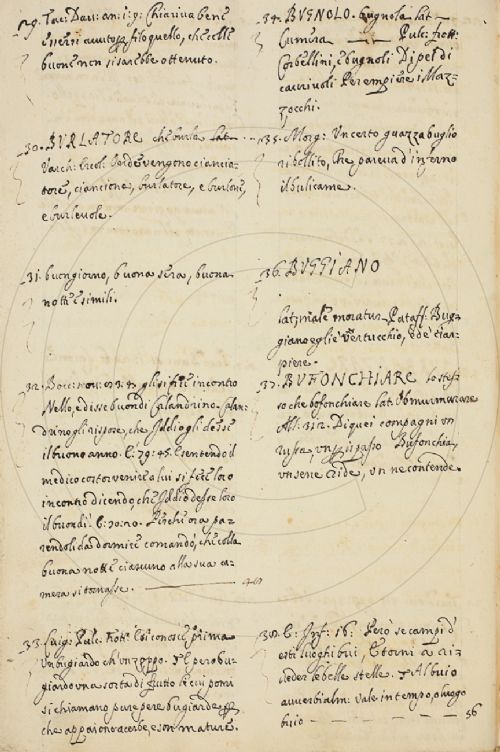 29. Tac: Dav: an: i: 9: Chiariva bene
essersi avuto filo quello, che colle
buone non si sarebbe ottenuto.
30. BURLATORE che burla Lat.
Varch: Ercol. Onde vengono ciancia-
tore, ciancione, burlatore, e burlone,
e burlevole.
31. buongiorno, buona sera, buona
notte e simili.
32. Bocc: nov: gli si fece incontro
Nello, e disse buondì Calandrino. Calan-
drino gli rispose, che Iddio gli desse
il buono anno. E: 79: 45. E sentendo il
medico costor venire a lui si fece loro
incontro dicendo, che Iddio desse loro
il buondì. E: Perchè ora pa-
rendoli da dormire comandò, che colla
buona notte ciascuno alla sua ca-
mera si tornasse.
33. Luigi Pulc: Frott: E si conosce prima
un bugiardo ch' un zoppo. E pero bu-
giardo una sorta di frutto le cui pomi
si chiamano pure pere bugiarde
che appaiono acerbe, e son mature.
34. BUGNOLO. bugnola Lat.
Cumera Pulc: Frott:
Corbellini, e bugnoli Di pel di
cavrivoli Per empiere i Maz-
zocchi.
35. Morg: Un certo guazzabuglio
ribollito, Che pareva d'inferno
il bulicame.
36. BUGGIANO
Pataff: Bug-
giano egli è Vertucchio, ed è
37. BUFONCHIARE lo stes-
so che bofonchiare Lat. Obmurmurare
All: 312. Di quei compagni un
russa, un Bufonchia,
un se ne ride, un ne contende.
38. E: Inf: 16: Però se campi d'
esti luoghi bui, E torni a ri-
veder le belle stelle. Al buio
avverbialm: vale in tempo, o luogo
buio
56